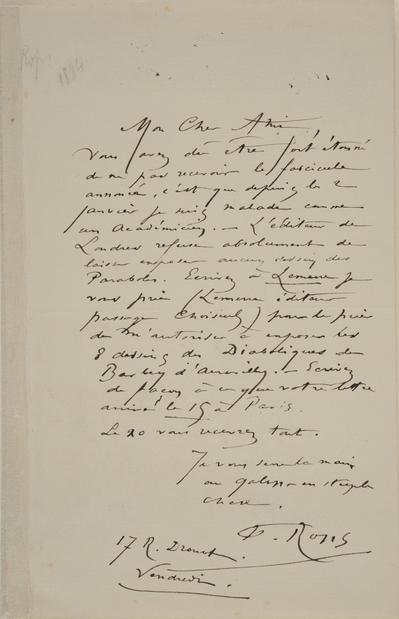 Rops
1884
Mon Cher Ami
Vous avez dû être fort étonné
de ne pas recevoir le fascicule
annoncé, c'est que depuis le 2
janvier je suis malade comme
un Académicien. – L'éditeur de
Londres refuse absolument de
laisser exposer aucun dessin des
Paraboles. Ecrivez à Lemerre je
vous prie (Lemerre éditeur
passage Choiseul) pour le prier
de m'autoriser à exposer les
8 dessins des Diaboliques de
Barbey d'Aurevilly. – Ecrivez
de façon à ce que votre lettre
arrive le 15 à Paris.
Le 20 vous recevrez tout.
Je vous serre la main
au galop en steeple
chase.
F. Rops
17 R. Drouot
Vendredi.